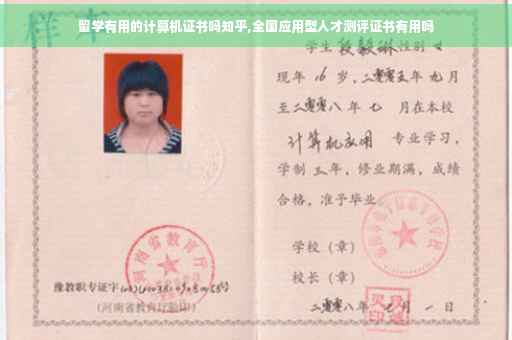 留学有用的计算机证书吗知乎,全国应用型人才测评证书有用吗
样本
学生段毅琳性别女
现年16岁,二零零五年九月
至二零零八年七月在本校
计算机应用 专业学习,
学制三年,修业期满,成绩
合格,准予毕业
学校(章)
校长(章)
二零零八年 月一日
河南省教育厅
豫教职专证字
(河南省教育厅验印)